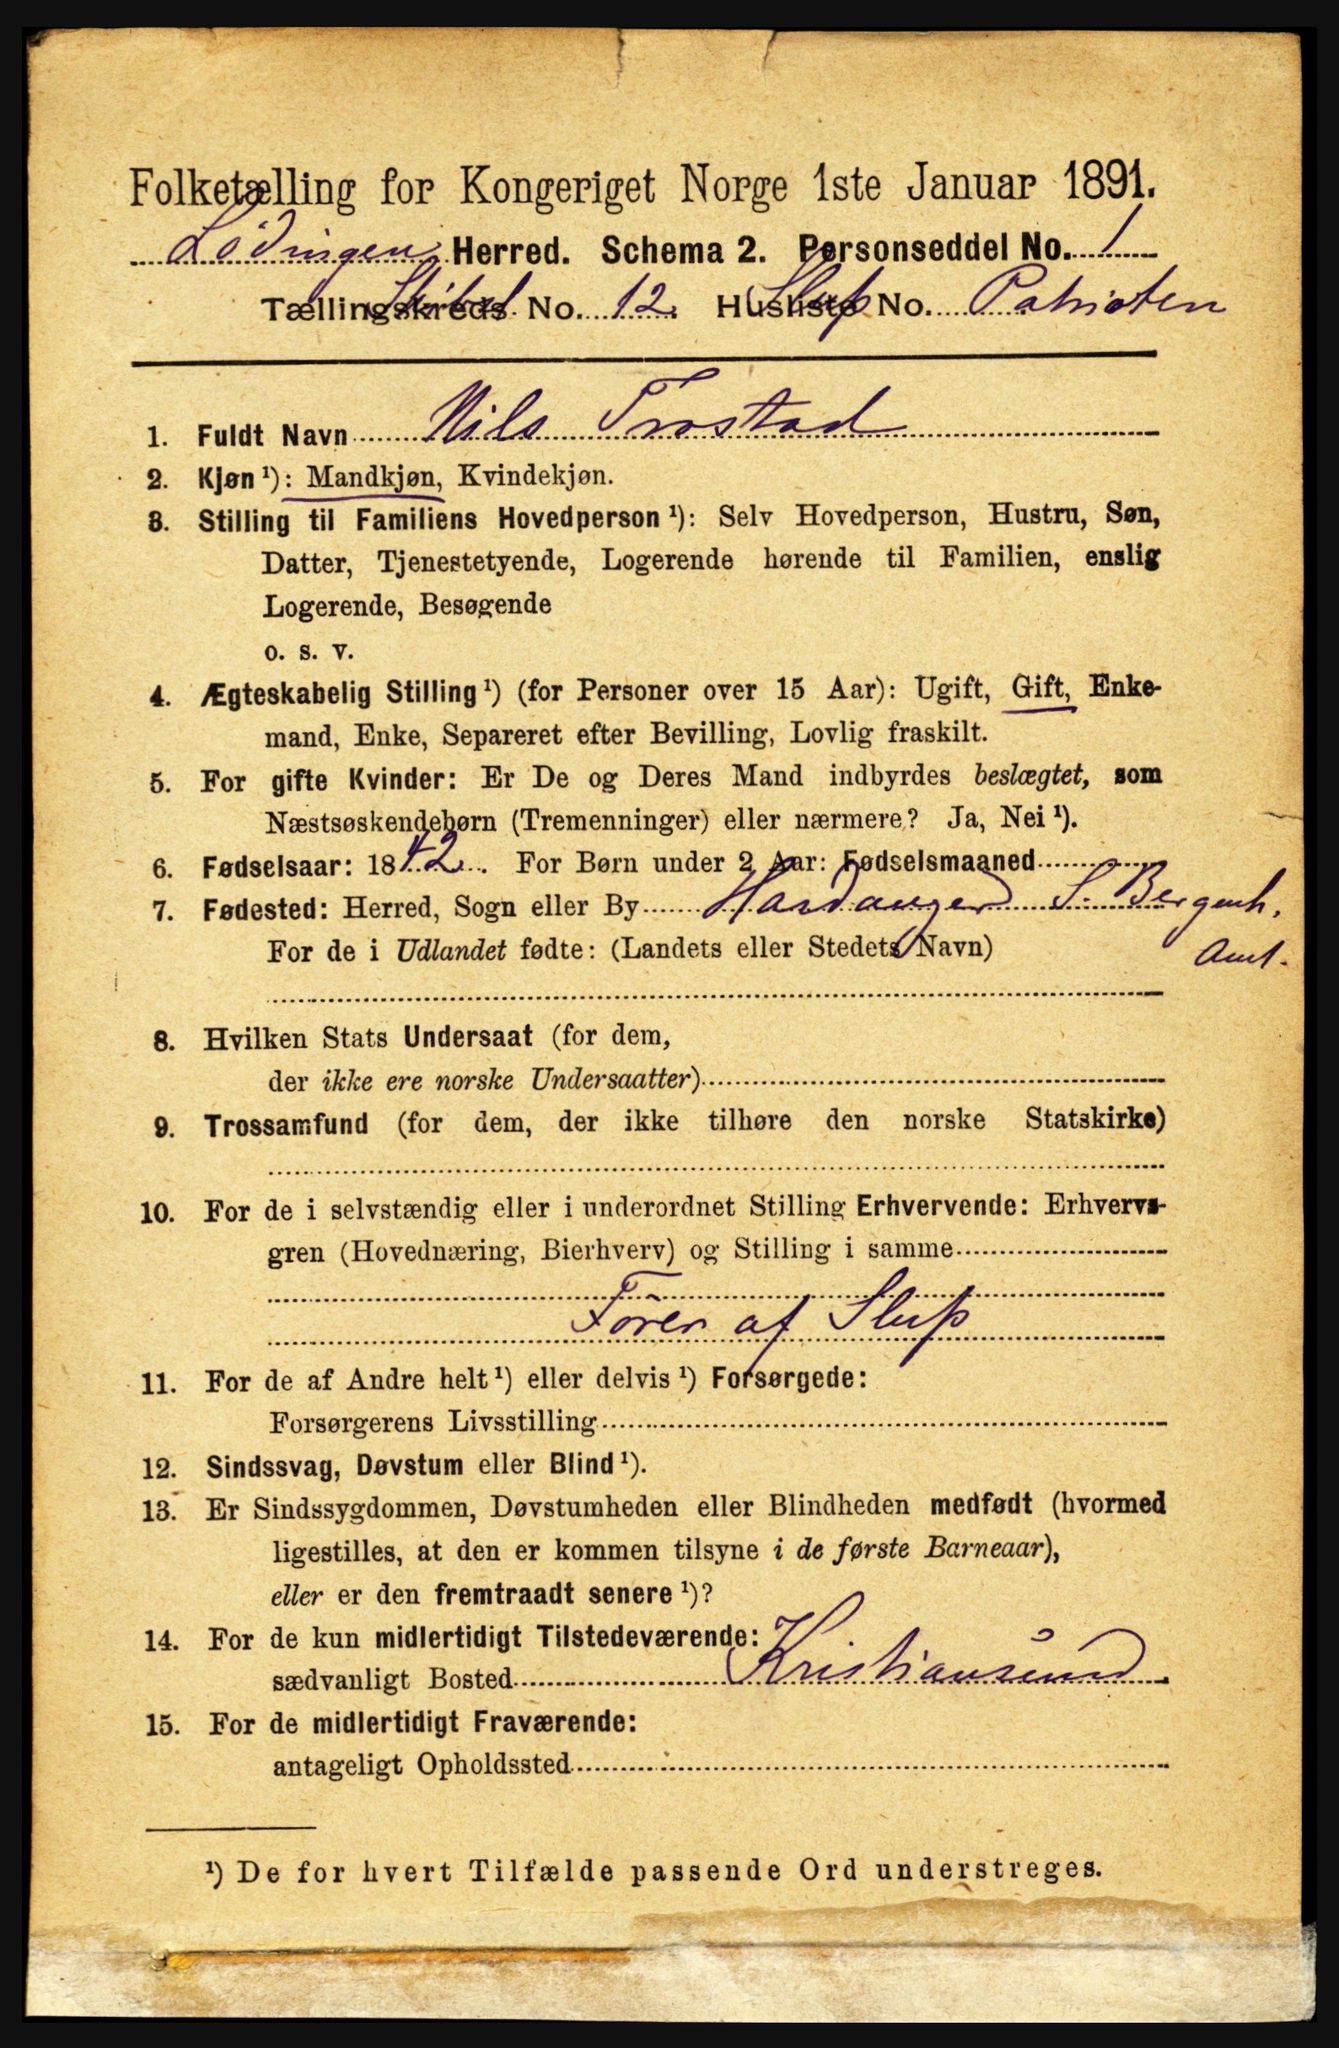 Folketælling for Kongeriget Norge 1ste Januar 1891.
Lödingen Herred. Schema 2. Personseddel No. 1
Tællingskreds No. 12. Husliste No. Patrioten
Skibsl. Slup
1. Fuldt Navn Nils Trostad
2. Kjøn ¹): Mandkjøn, Kvindekjøn.
3. Stilling til Familiens Hovedperson ¹): Selv Hovedperson, Hustru, Søn,
Datter, Tjenestetyende, Logerende hørende til Familien, enslig
Logerende, Besøgende
o. s. v.
4. Ægteskabelig Stilling ¹) (for Personer over 15 Aar): Ugift, Gift, Enke-
mand, Enke, Separeret efter Bevilling, Lovlig fraskilt.
5. For gifte Kvinder: Er De og Deres Mand indbyrdes beslægtet, som
Næstsøskendebørn (Tremenninger) eller nærmere? Ja, Nei ¹).
6. Fødselsaar: 1842. For Børn under 2 Aar: Fødselsmaaned
7. Fødested: Herred, Sogn eller By Hardanger S. Bergenh.
For de i Udlandet fødte: (Landets eller Stedets Navn) Amt.
8. Hvilken Stats Undersaat (for dem,
der ikke ere norske Undersaatter)
9. Trossamfund (for dem, der ikke tilhøre den norske Statskirke)
10. For de i selvstændig eller i underordnet Stilling Erhvervende: Erhvervs-
gren (Hovednæring, Bierhverv) og Stilling i samme
Förer af Slup
11. For de af Andre helt ¹) eller delvis ¹) Forsørgede:
Forsørgerens Livsstilling
12. Sindssvag, Døvstum eller Blind ¹).
13. Er Sindssygdommen, Døvstumheden eller Blindheden medfødt (hvormed
ligestilles, at den er kommen tilsyne i de første Barneaar),
eller er den fremtraadt senere ¹)?
14. For de kun midlertidigt Tilstedeværende:
sædvanligt Bosted Kristiansund
15. For de midlertidigt Fraværende:
antageligt Opholdssted
¹) De for hvert Tilfælde passende Ord understreges.